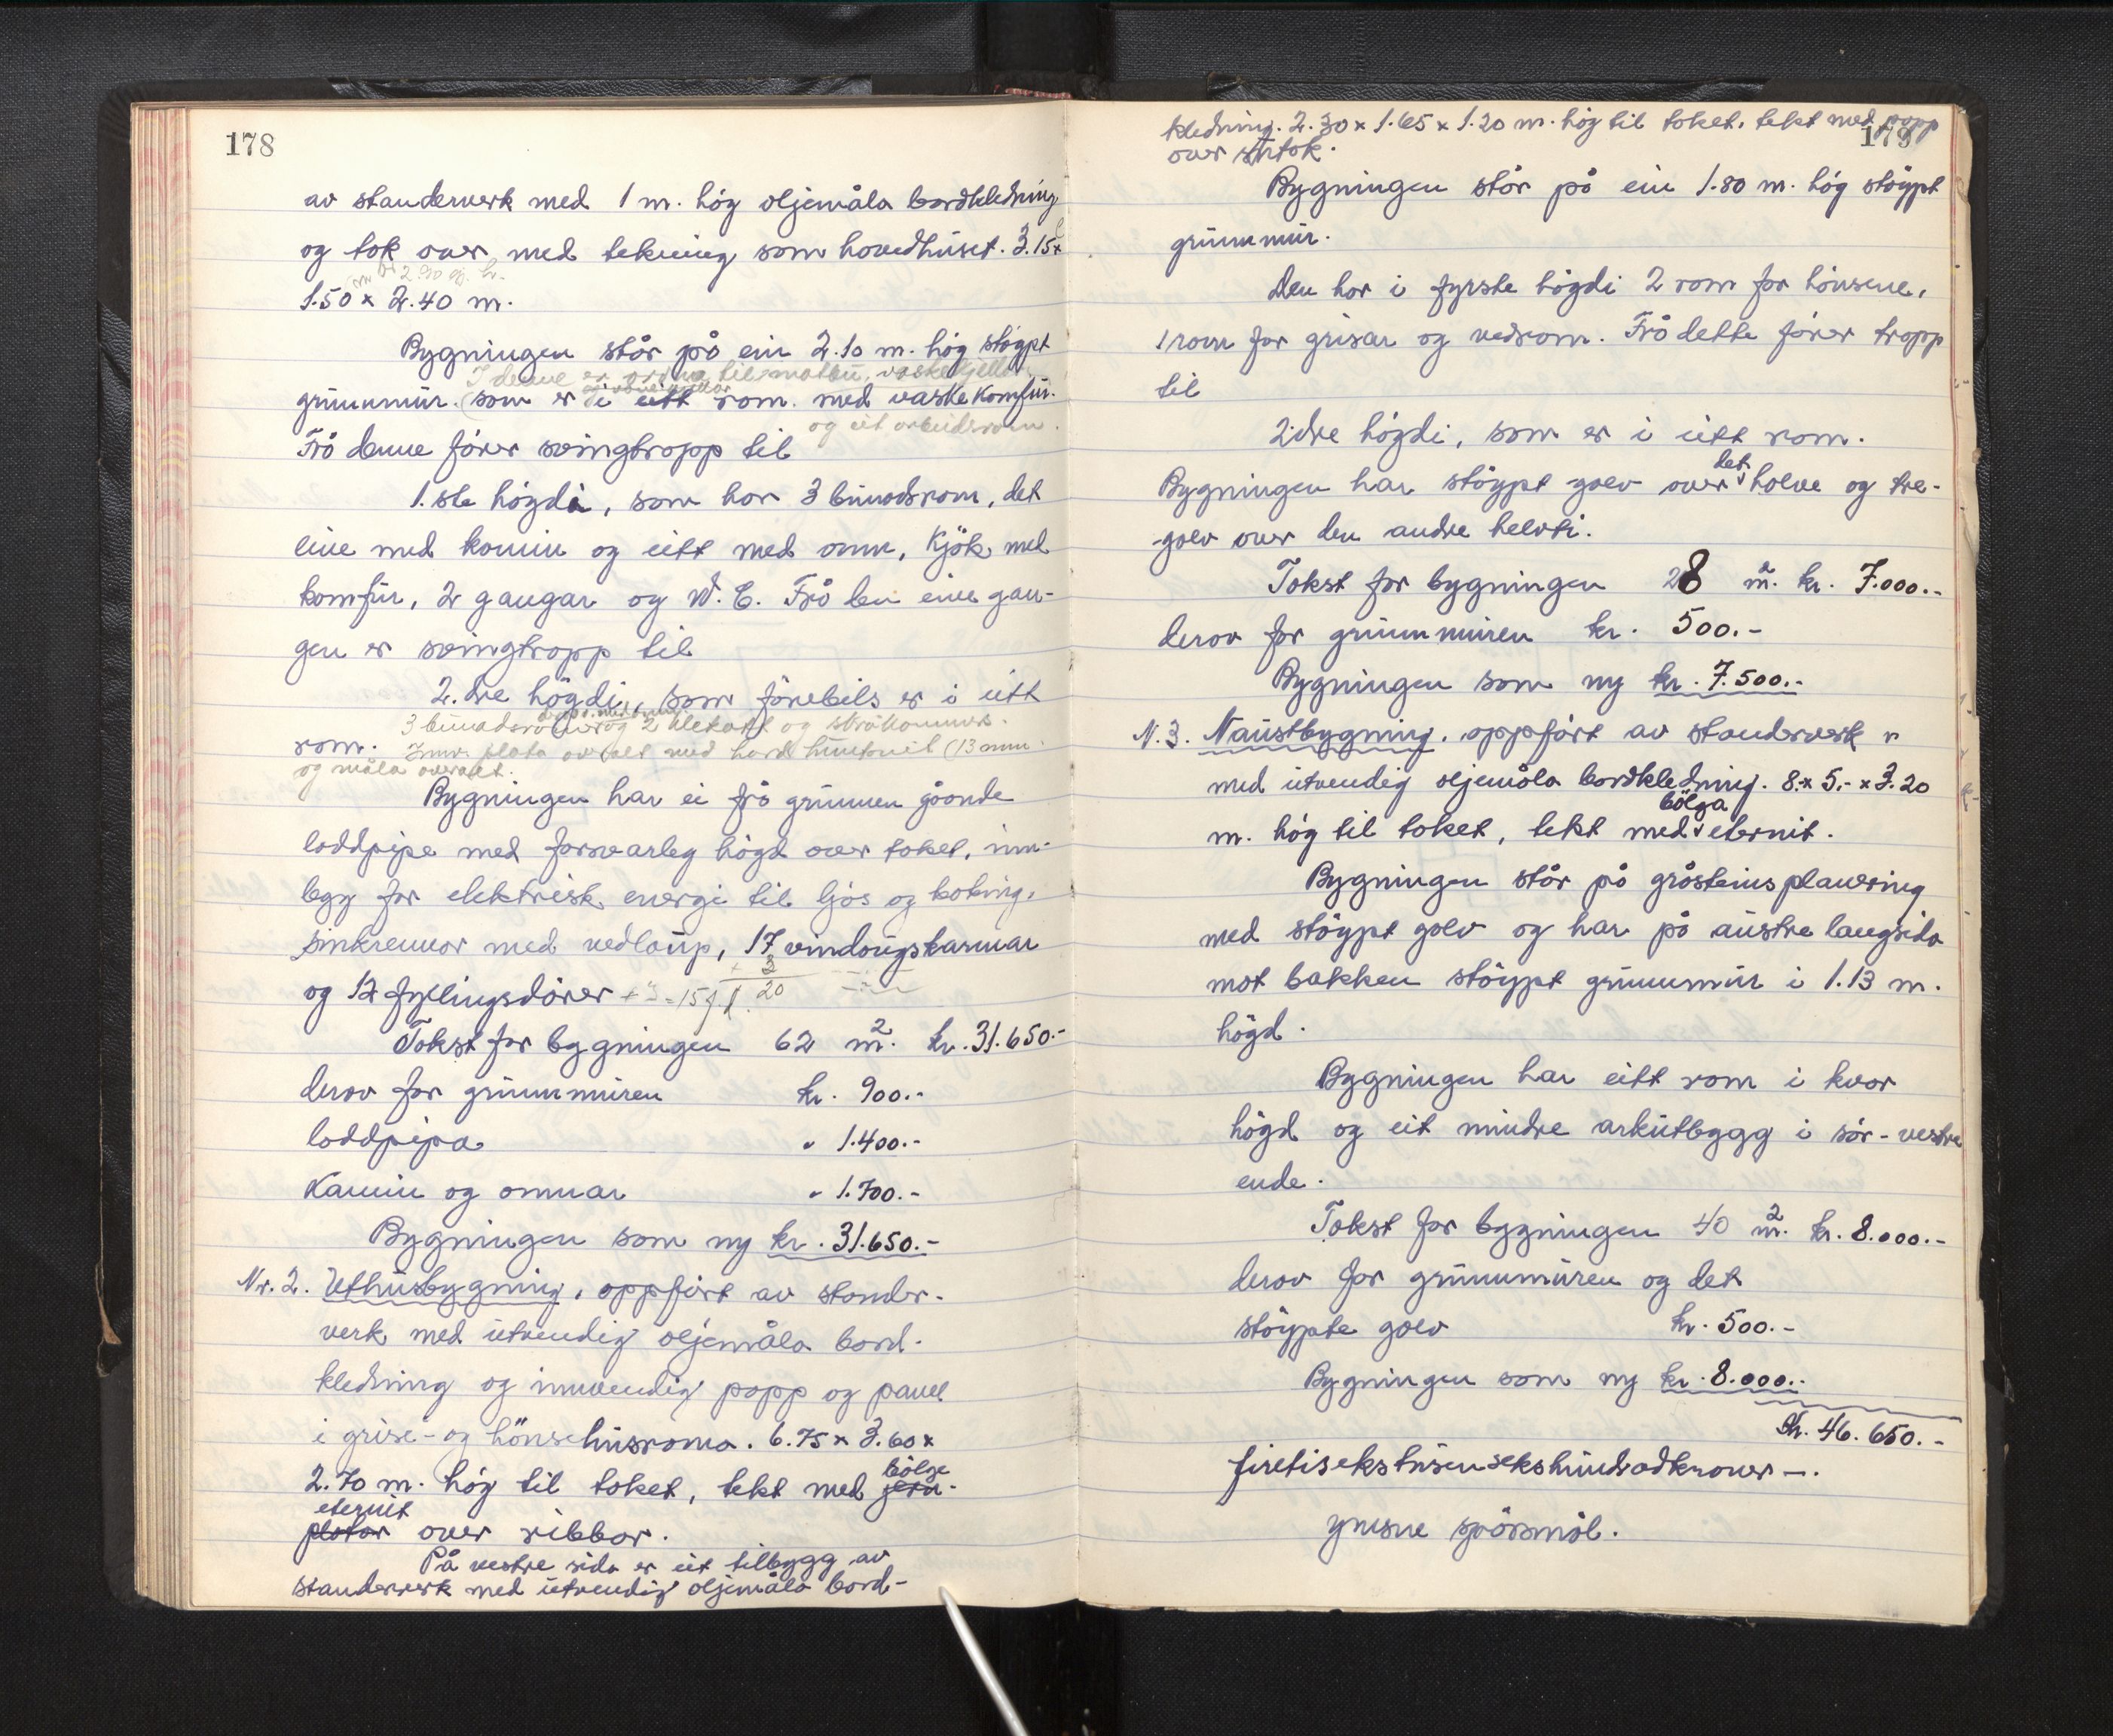 178
av standerverk med 1 m. høg oljemåla bordkledning
og tak over med tekning som hovedhuset. 3.15x
1.50 x 2.40 m.
Bygningen står på ein 2.10 m. høg støypt
I denne er matbu, vaskekjellar
grunnmur. (som er i eitt rom. med vaskekomfur.
og eit arbeidsrom.
Frå denne fører svingtrapp til
1.ste høgdi, som har 3 bunadsrom, det
eine med kamin og eitt med omn, kjök med
komfur, 2 gangar og W.C. Frå den eine gan-
gen er svingtrapp til
2.dre høgdi, som førebils er i eitt
3 bunadsrom og 2 kleskott og
rom. Innv. plata overalt med hard huntonit (13 mm.
og måla overalt.
Bygningen har ei frå grunnen gåande
loddpipe med forsvarleg høgd over taket, inn-
legg for elektrisk energi til ljos og koking,
sinkrennor med nedlaup, 17 vindaugskarmar
+ 3
og 12 fyllingsdører + 3 = 15 f.d. 20
Takst for bygningen 62 m². kr. 31.650.-
derav for grunnmuren kr. 900.-
loddpipa " 1.400.-
Kamin og omnar " 1.700.-
Bygningen som ny kr. 31.650.-
Nr. 2. Uthusbygning, oppført av stander-
verk med utvendig oljemåla bord-
kledning og innvendig papp og panel
i grise- og hönsehusroma. 6.75 x 3.60 x
bölge
2.70 m. høg til taket, tekt med jern-
eternit
platar over ribbor.
På vestre sida er eit tilbygg av
standerverk med utvendig oljemåla bord-
179
kledning. 2.30 x 1.65 x 1.20 m. høg til taket, tekt med papp
over sutak.
Bygningen står på ein 1.80 m. høg støypt
grunnmur.
Den har i fyrste høgdi 2 rom for hønsene,
1 rom for grisar og vedrom. Frå dette fører trapp
til
2.dre høgdi, som er i eitt rom.
det
Bygningen har støypt golv over halve og tre-
golv over den andre helvti.
Takst for bygningen 28 m². kr. 7.000.-
derav for grunnmuren kr. 500.-
Bygningen som ny kr. 7.500.-
N. 3. Naustbygning, oppført av standerverk
med utvendig oljemåla bordkledning. 8.- x 5.- x 3.20
bölga
m. høg til taket, tekt med eternit.
Bygningen står på gråsteinsplanering
med støypt golv og har på austre langsida
mot bakken støypt grunnmur i 1.13 m.
høgd.
Bygningen har eitt rom i kvar
høgd og eit mindre arkutbygg i sør-vestre
ende.
Takst for bygningen 40 m². kr. 8.000.-
derav for grunnmuren og det
støypte golv kr. 500.-
Bygningen som ny kr. 8.000.-
Kr. 46.650.-
firetisekstusensekshundradkroner-.
ymsne spörsmål.